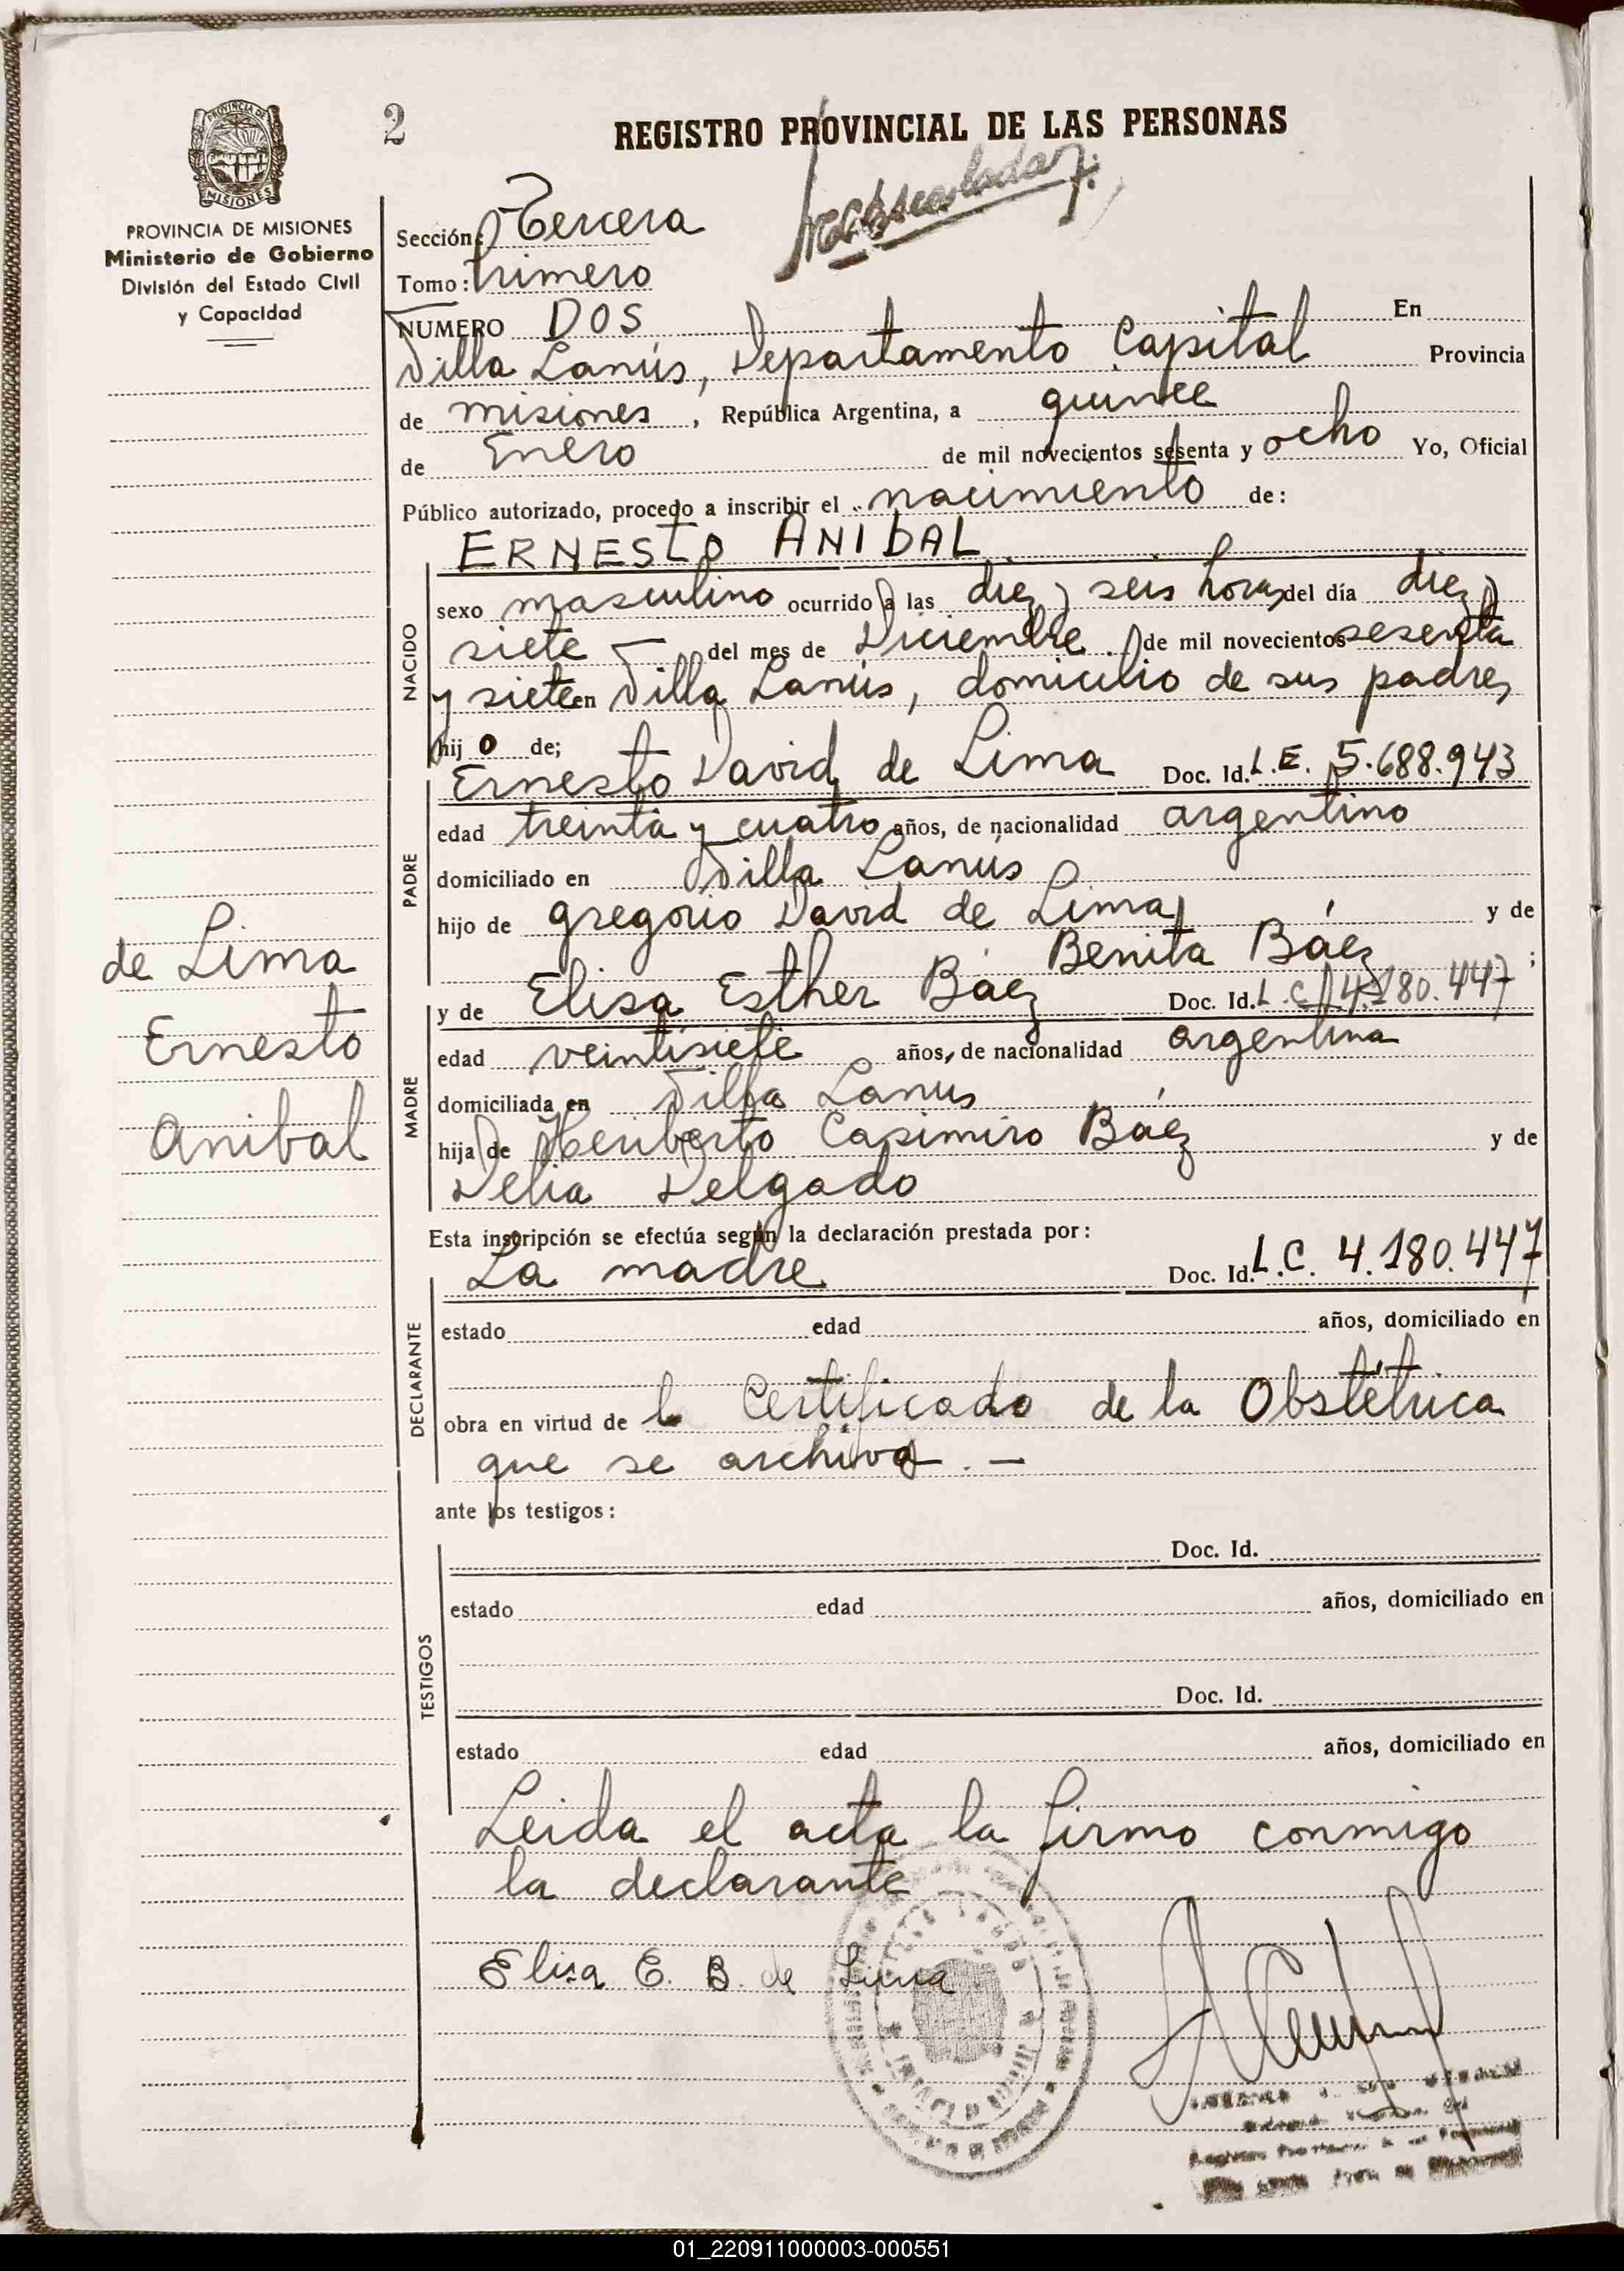 2
REGISTRO PROVINCIAL DE LAS PERSONAS
PROVINCIA DE MISIONES
PROVINCIA DE MISIONES
Ministerio de Gobierno
División del Estado Civil
y Capacidad
Sección: Tercera
Tomo: Primero
NUMERO DOS En
Villa Lanús, Departamento Capital Provincia
de misiones, República Argentina, a quince
de Enero de mil novecientos sesenta y ocho Yo, Oficial
Público autorizado, procedo a inscribir el nacimiento de:
ERNESTO ANIBAL
NACIDO
sexo masculino ocurrido a las diez y seis horas del día diez y
siete — del mes de Diciembre de mil novecientos sesenta
y siete en Villa Lanús, domicilio de sus padres
hijo de;
Ernesto David de Lima Doc. Id. L.E. 5.688.943
PADRE
edad treinta y cuatro años, de nacionalidad argentino
domiciliado en Villa Lanús
hijo de Gregorio David de Lima y de
Benita Báez ;
de Lima
Ernesto
Anibal
MADRE
y de Elisa Esther Báez Doc. Id. L.C. 4.180.447
edad veintisiete años, de nacionalidad argentina
domiciliada en Villa Lanus
hija de Heriberto Casimiro Báez y de
Delia Delgado
Esta inscripción se efectúa según la declaración prestada por:
La madre Doc. Id. L.C. 4.180.447
DECLARANTE
estado edad años, domiciliado en
obra en virtud de l Certificado de la Obstétrica
que se archiva. —
ante los testigos:
TESTIGOS
Doc. Id.
estado edad años, domiciliado en
Doc. Id.
estado edad años, domiciliado en
Leida el acta la firmo conmigo
la declarante
Elisa E. B. de Lima
01_220911000003-000551